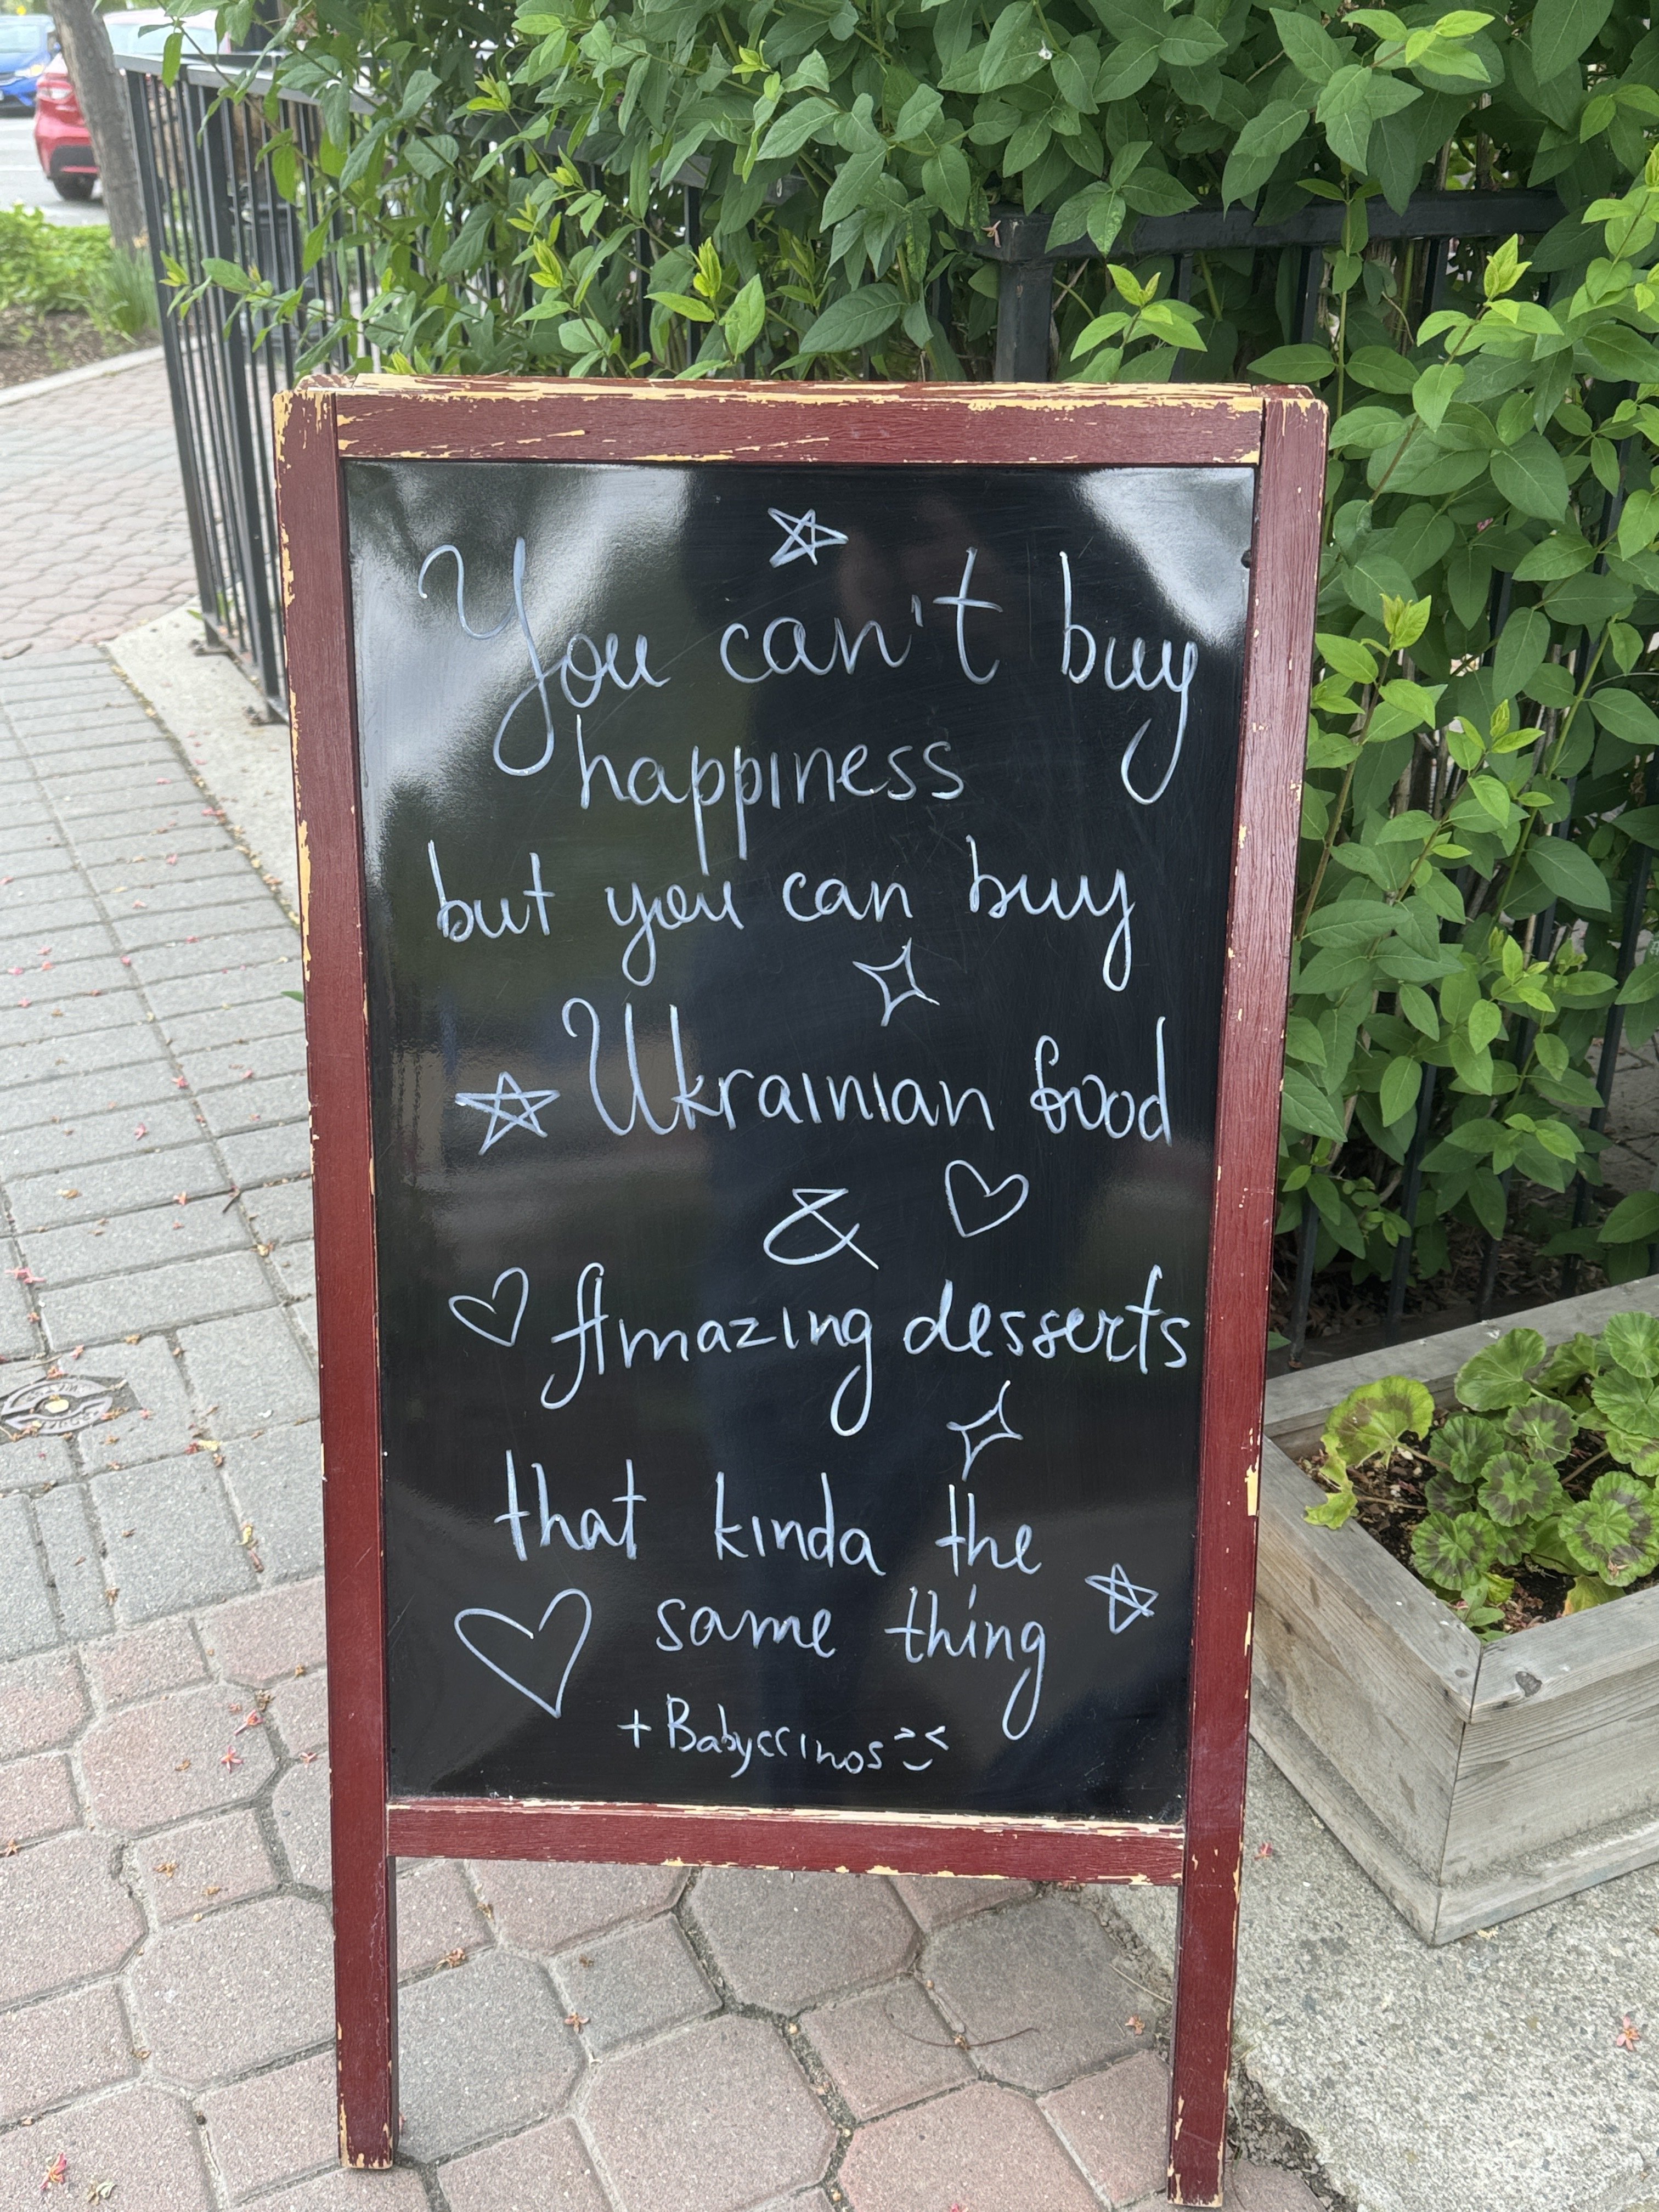 You can't buy
happiness
but you can buy
Ukrainian food
&
Amazing desserts
that kinda the
same thing
+Babyccinos